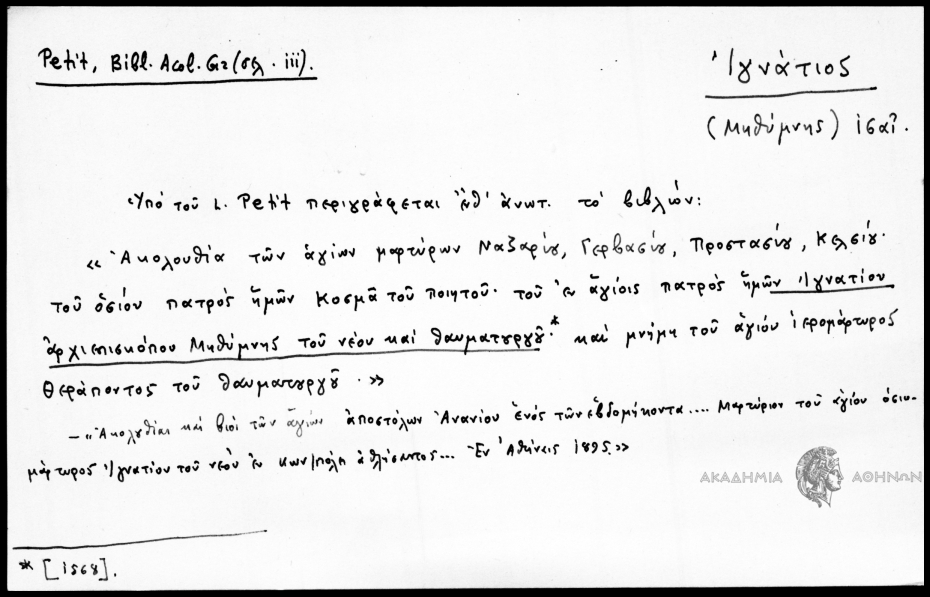 Petit, Bibl. Acol. Gr (σελ. iii).
Ἰγνάτιος
(Μηθύμνης) ἰσαῖ.
Ὑπό τοῦ L. Petit περιγράφεται ἐνθ' ἀνωτ. τό βιβλίον:
«Ἀκολουθία τῶν ἁγίων μαρτύρων Ναζαρίου, Γερβασίου, Προστασίου, Κελσίου·
τοῦ ὁσίου πατρός ἡμῶν Κοσμᾶ τοῦ ποιητοῦ· τοῦ ἐν ἁγίοις πατρός ἡμῶν Ἰγνατίου
ἀρχιεπισκόπου Μηθύμνης τοῦ νέου καί θαυματουργοῦ·* καί μνήμη τοῦ ἁγίου ἱερομάρτυρος
Θεράποντος τοῦ θαυματουργοῦ.»
- «Ἀκολουθίαι καί βίοι τῶν ἁγίων ἀποστόλων Ἀνανίου ἑνός τῶν ἑβδομήκοντα.... Μαρτύριον τοῦ ἁγίου ὁσιο-
μάρτυρος Ἰγνατίου τοῦ νέου ἐν Κων/πόλη ἀθλήσαντος... Ἐν Ἀθήναις 1895.»
ΑΚΑΔΗΜΙΑ ΑΘΗΝΩΝ
* [1568].